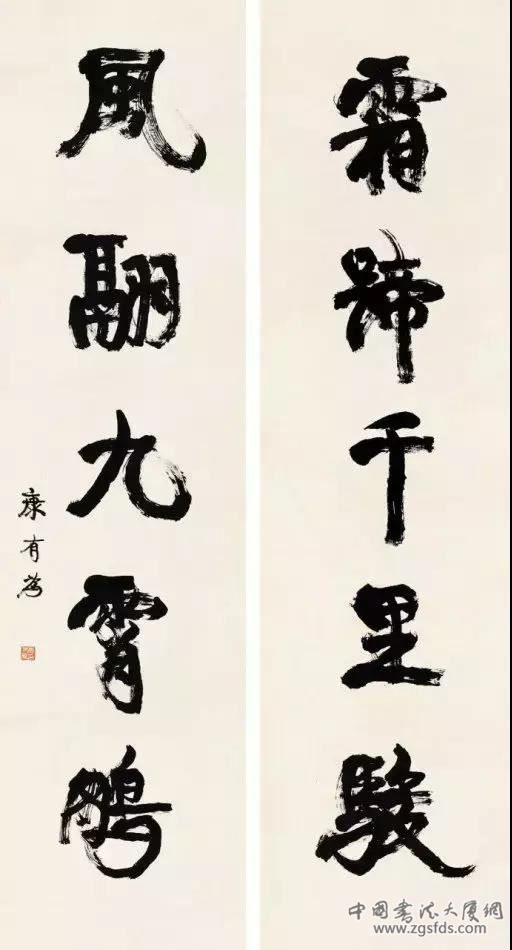 霜蹄千里駿
風翮九霄鵬
康有為
中國書法大厦網
www.zgsfds.com